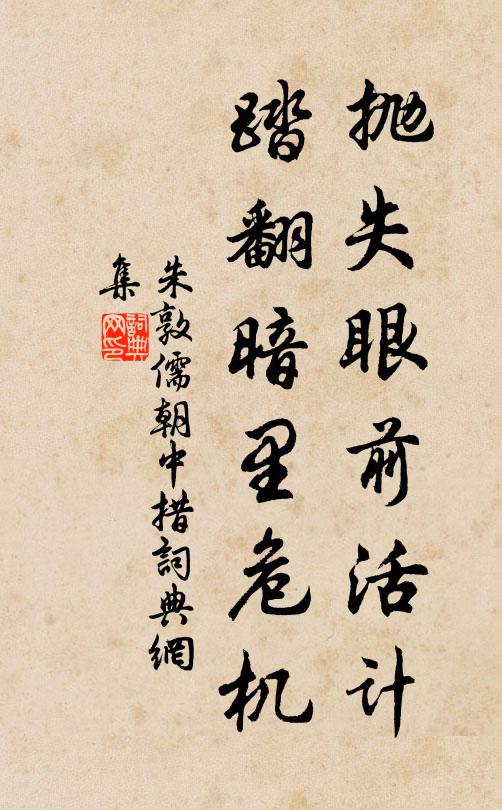 抛失眼前活计
踏翻暗里危机
朱敦儒朝中措詞典網
集
詞典
网印